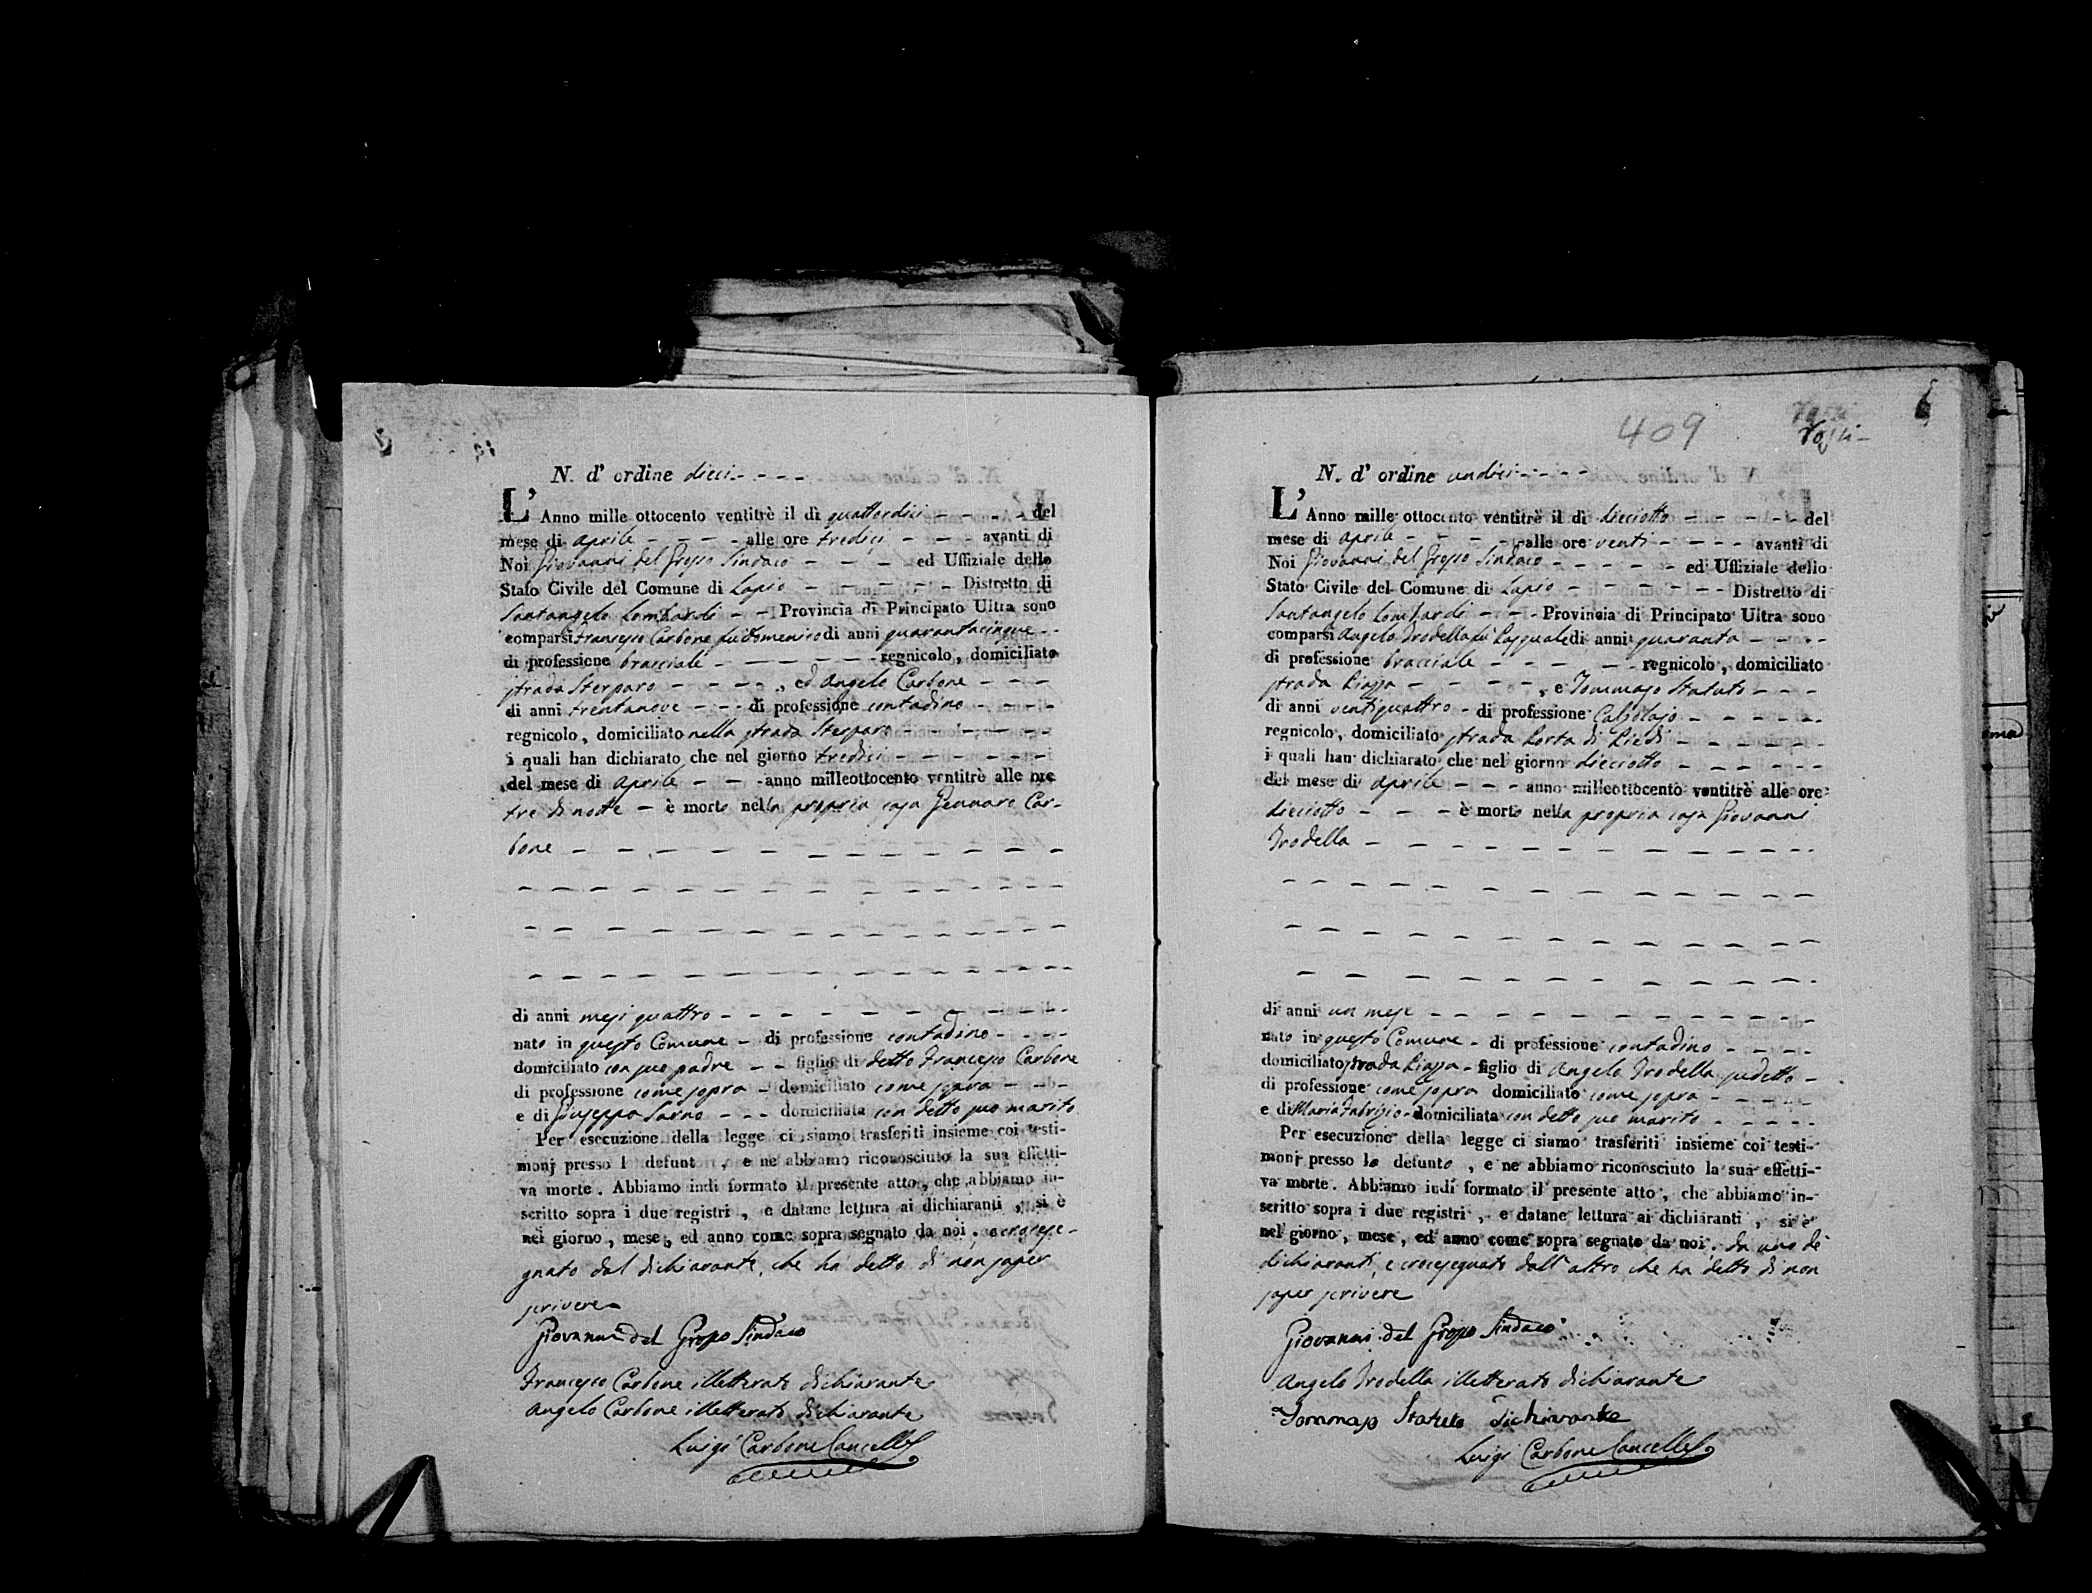 N. d' ordine dieci
L' Anno mille ottocento ventitrè il dì quattordici del
mese di Aprile alle ore tredici avanti di
Noi Giovanni del Grosso Sindaco ed Uffiziale dello
Stato Civile del Comune di Lapio Distretto di
Santangelo Lombardi Provincia di Principato Ultra sono
comparsi Francesco Carbone fu Domenico di anni quarantacinque
di professione bracciale regnicolo, domiciliato
strada Sterparo , ed Angelo Carbone
di anni trentanove di professione contadino
regnicolo, domiciliato nella strada Sterparo
i quali han dichiarato che nel giorno tredici
del mese di Aprile anno milleottocento ventitrè alle ore
tre di notte è morto nella propria casa Gennaro Car-
bone
di anni mesi quattro
nato in questo Comune di professione contadino
domiciliato con suo padre figlio di detto Francesco Carbone
di professione come sopra domiciliato come sopra
e di Giuseppa Sarno domiciliata con detto suo marito
Per esecuzione della legge ci siamo trasferiti insieme coi testi-
monj presso l defunt , e ne abbiamo riconosciuto la sua effetti-
va morte. Abbiamo indi formato il presente atto, che abbiamo in-
scritto sopra i due registri, e datane lettura ai dichiaranti, si è
nel giorno, mese, ed anno come sopra segnato da noi, e crocese-
gnato dal dichiarante, che ha detto di non saper
scrivere
Giovanni del Grosso Sindaco
Francesco Carbone illetterato dichiarante
Angelo Carbone illetterato dichiarante
Luigi Carbone Cancell
409
6
N. d' ordine undici
L' Anno mille ottocento ventitrè il dì dieciotto del
mese di Aprile alle ore venti avanti di
Noi Giovanni del Grosso Sindaco ed Uffiziale dello
Stato Civile del Comune di Lapio Distretto di
Santangelo Lombardi Provincia di Principato Ultra sono
comparsi Angelo Trodella fu Pasquale di anni quaranta
di professione bracciale regnicolo, domiciliato
strada Piazza , e Tommaso Statuto
di anni ventiquattro di professione Calzolajo
regnicolo, domiciliato strada Porta di Piedi
i quali han dichiarato che nel giorno dieciotto
del mese di Aprile anno milleottocento ventitrè alle ore
dieciotto è morto nella propria casa Giovanni
Trodella
di anni un mese
nato in questo Comune di professione contadino
domiciliato strada Piazza figlio di Angelo Trodella sudetto
di professione come sopra domiciliato come sopra
e di Maria Fabrizio domiciliata con detto suo marito
Per esecuzione della legge ci siamo trasferiti insieme coi testi-
monj presso lo defunto, e ne abbiamo riconosciuto la sua effetti-
va morte. Abbiamo indi formato il presente atto, che abbiamo in-
scritto sopra i due registri, e datane lettura ai dichiaranti, si è
nel giorno, mese, ed anno come sopra segnato da noi, da uno de'
dichiaranti, e crocesegnato dall' altro, che ha detto di non
saper scrivere
Giovanni del Grosso Sindaco
Angelo Trodella illetterato dichiarante
Tommaso Statuto Dichiarante
Luigi Carbone Cancell